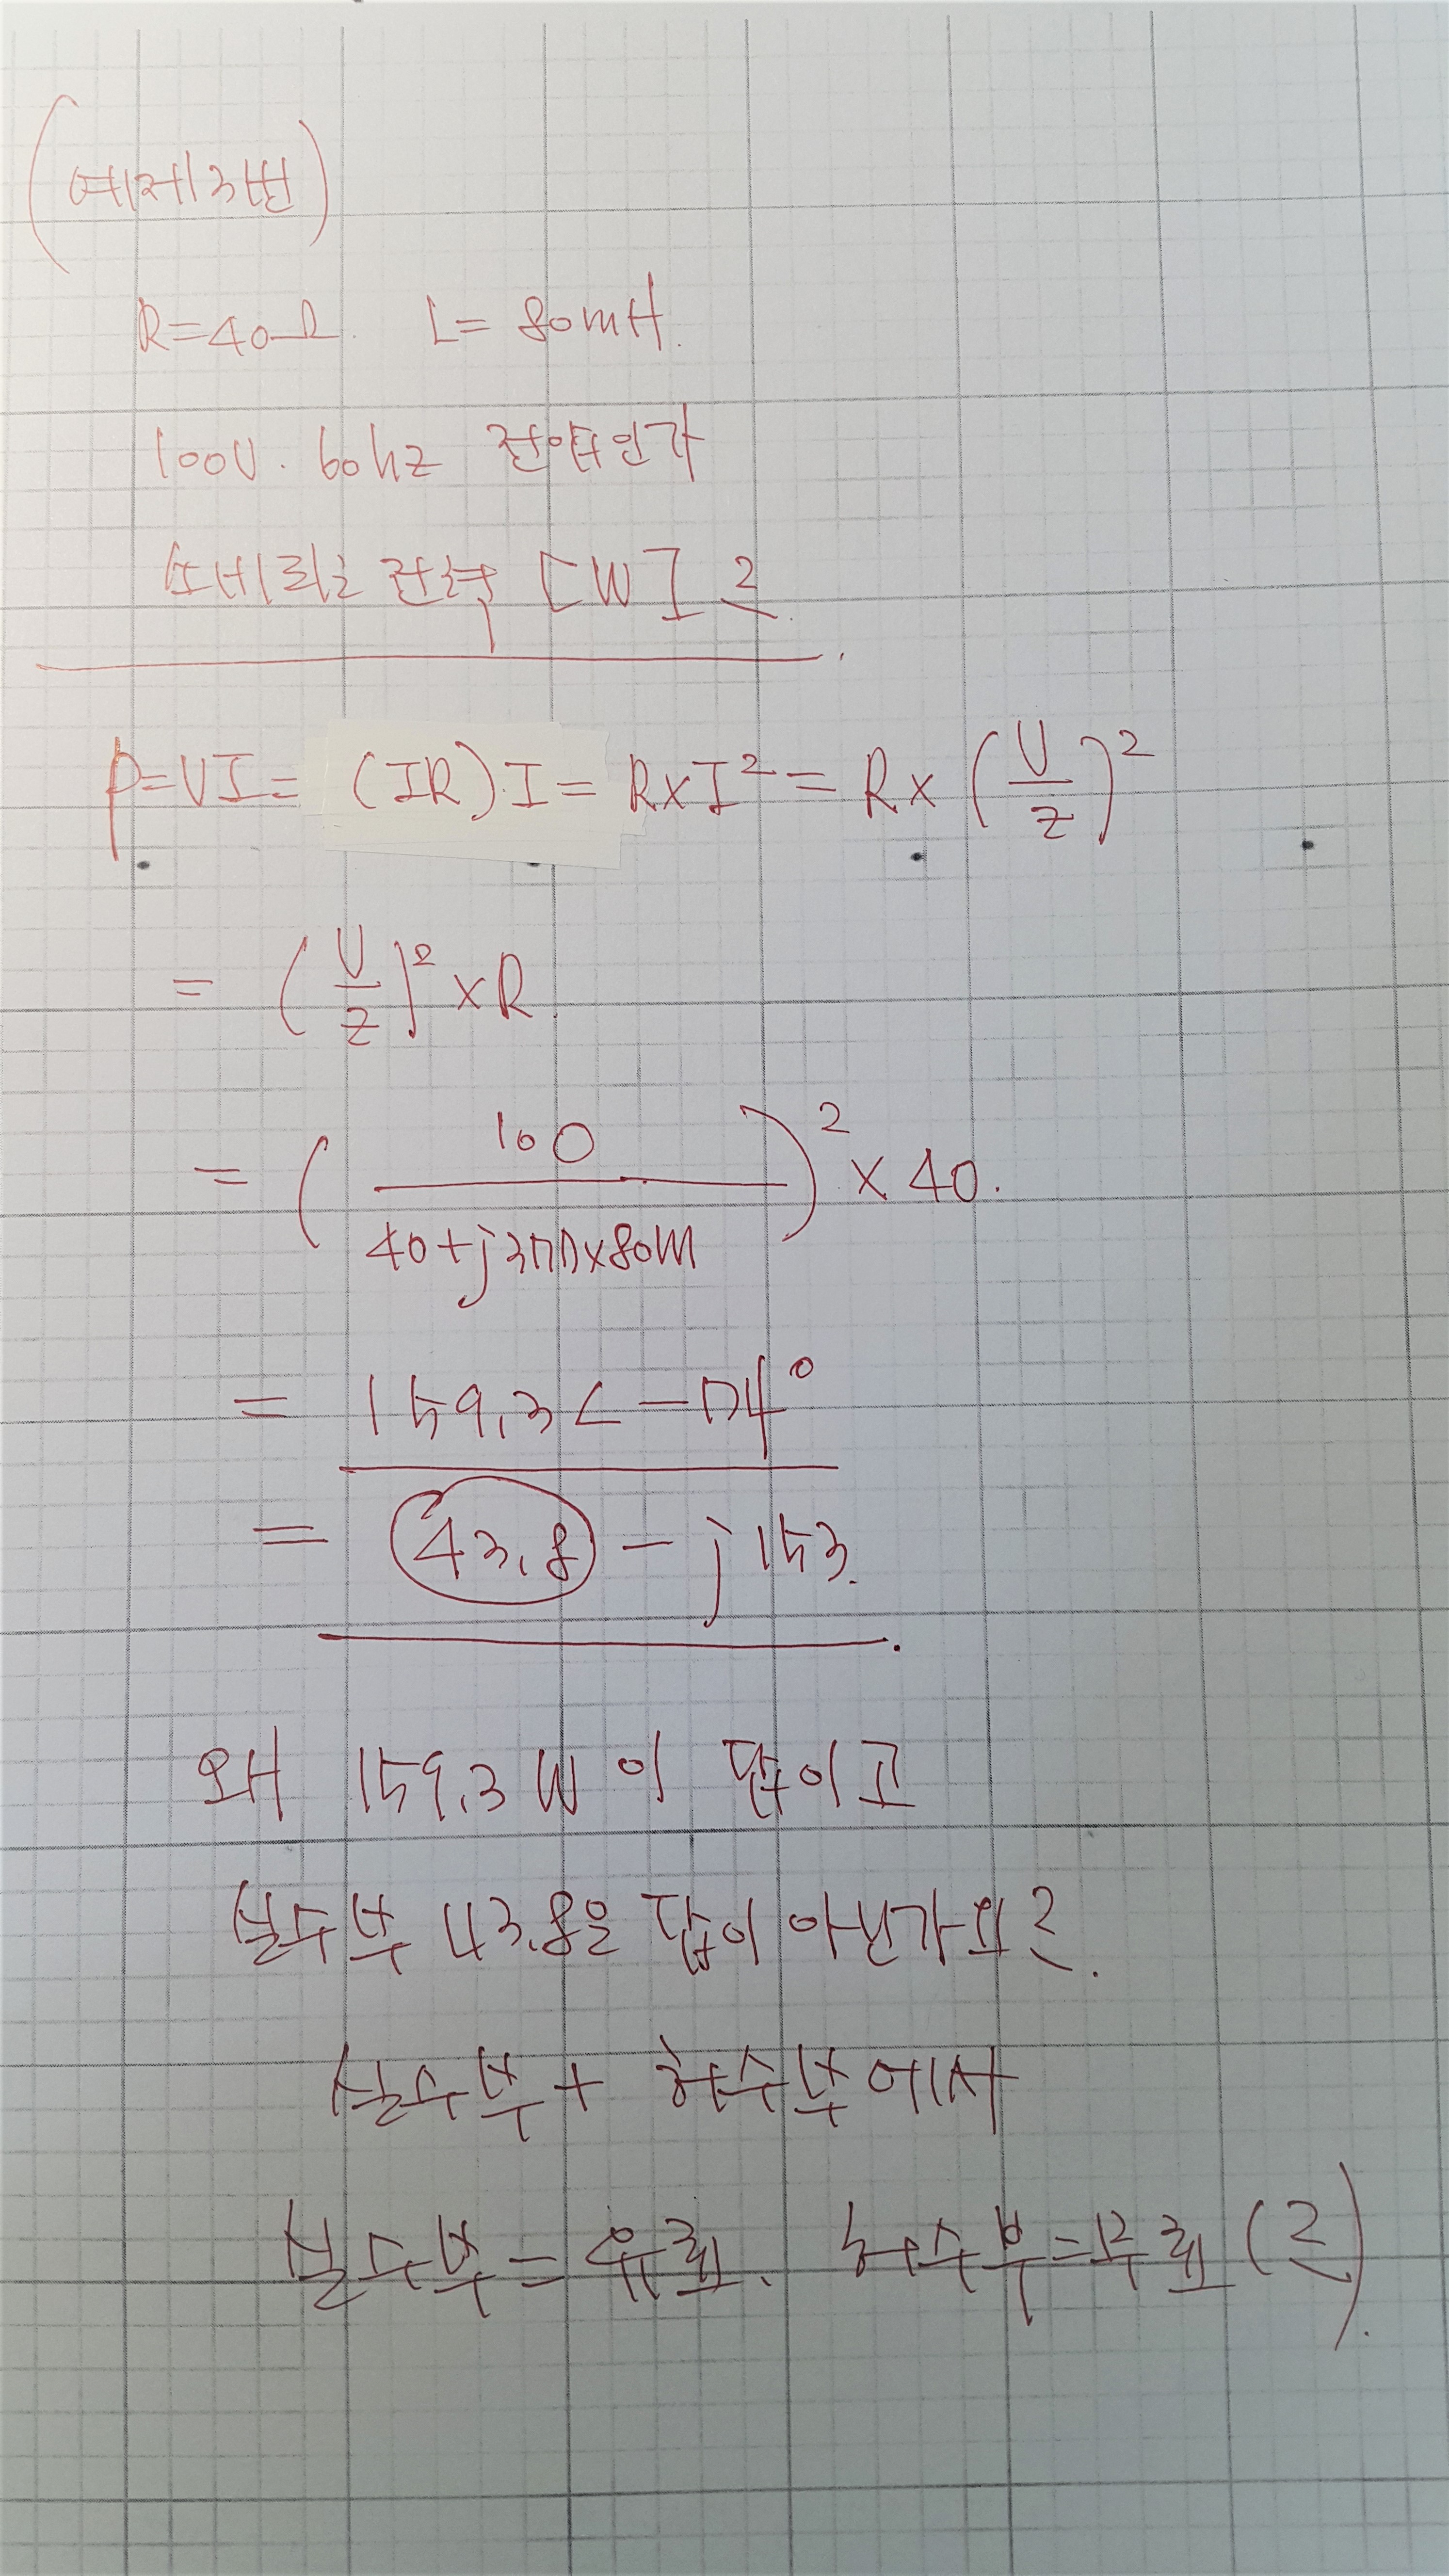 (예제3번)
R=40Ω. L= 80mH.
100V. 60hz 전압인가
소비되는 전력 [W] ?
P=VI= (IR)·I= R×I² = R× (V/Z)²
= (V/Z)² ×R
= (100 / 40+j377×80m)² × 40.
= 159.3∠-74°
= 43.8 - j153.
왜 159.3W 이 답이고
실수부 43.8은 답이 아닌가요?
실수부 + 허수부 에서
실수부 = 유효. 허수부=무효 (?)